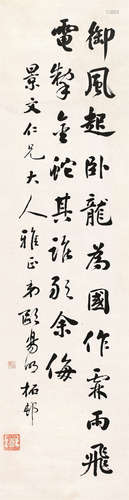 御風起卧龍為國作霖雨飛
電掣金蛇其誰敢余侮
景文仁兄大人雅正弟歐陽